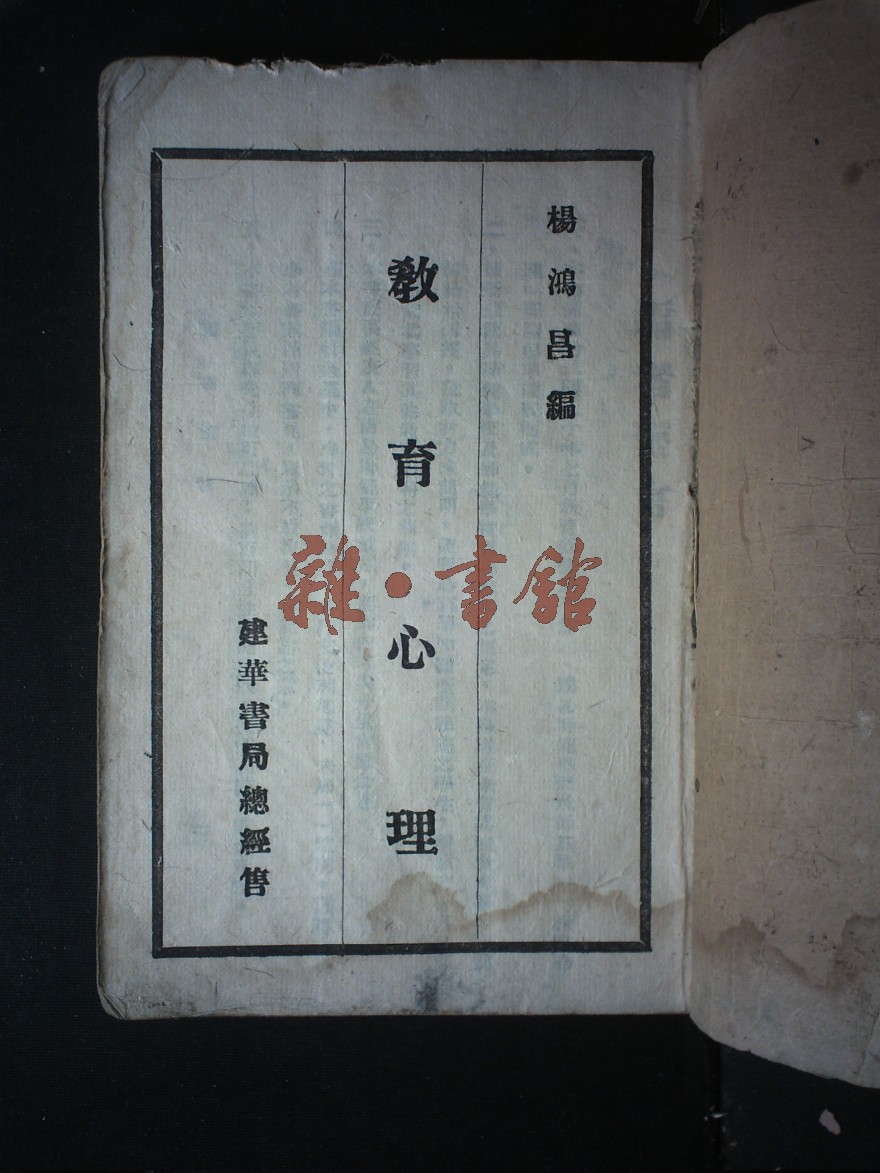 楊鴻昌編
教育心理
建華書局總經售
雜·書館